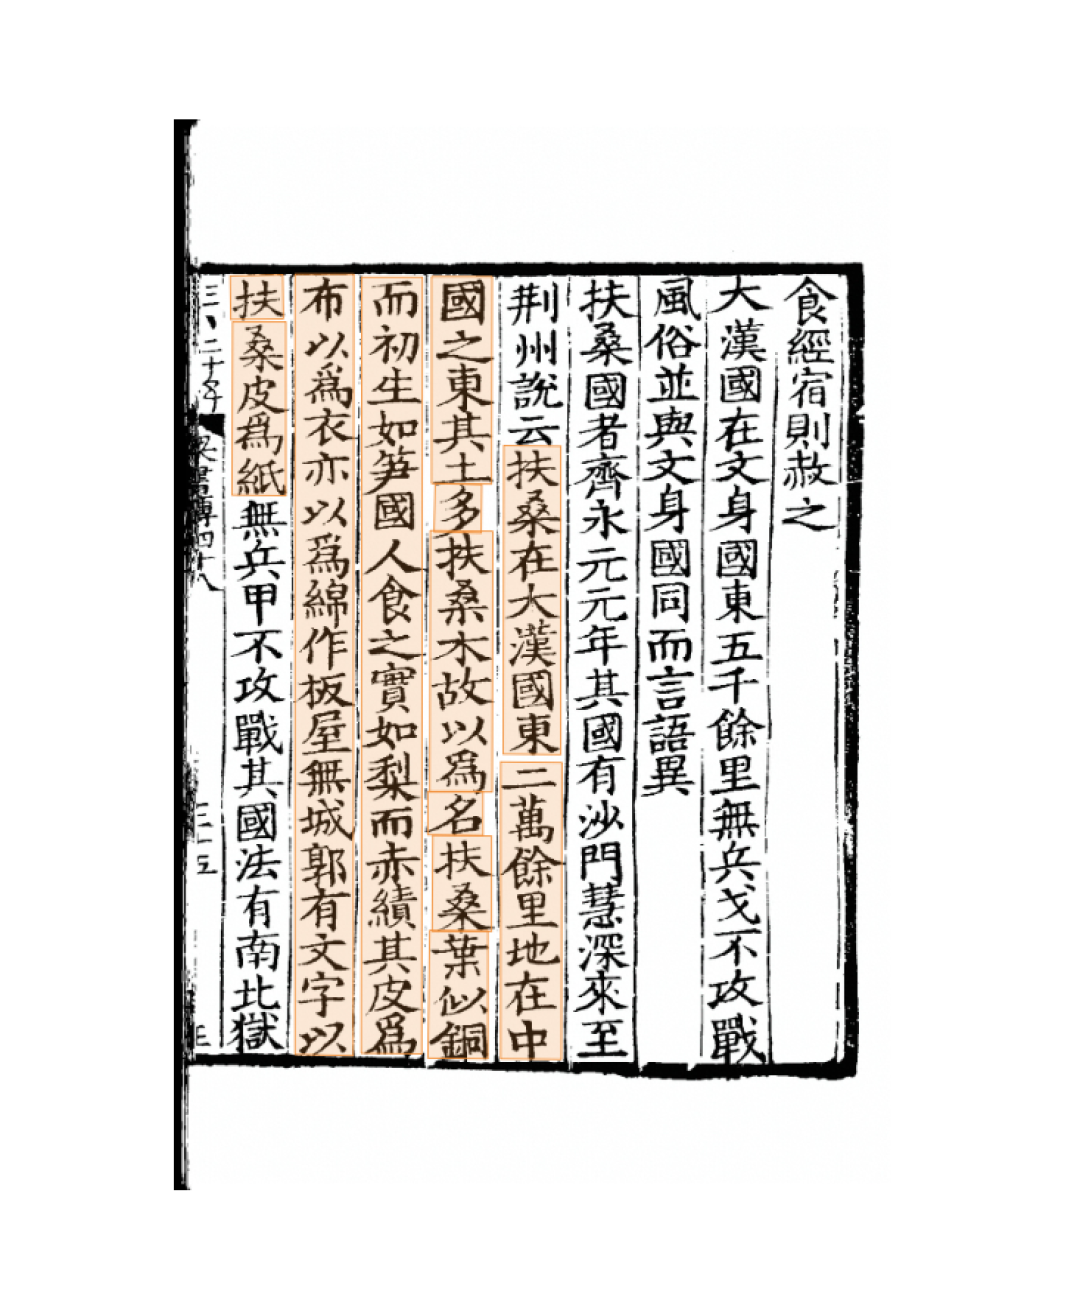 食經宿則赦之
大漢國在文身國東五千餘里無兵戈不攻戰
風俗並與文身國同而言語異
扶桑國者齊永元元年其國有沙門慧深來至
荆州說云扶桑在大漢國東二萬餘里地在中
國之東其土多扶桑木故以爲名扶桑葉似銅
而初生如笋國人食之實如梨而赤績其皮爲
布以爲衣亦以爲綿作板屋無城郭有文字以
扶桑皮爲紙無兵甲不攻戰其國法有南北獄